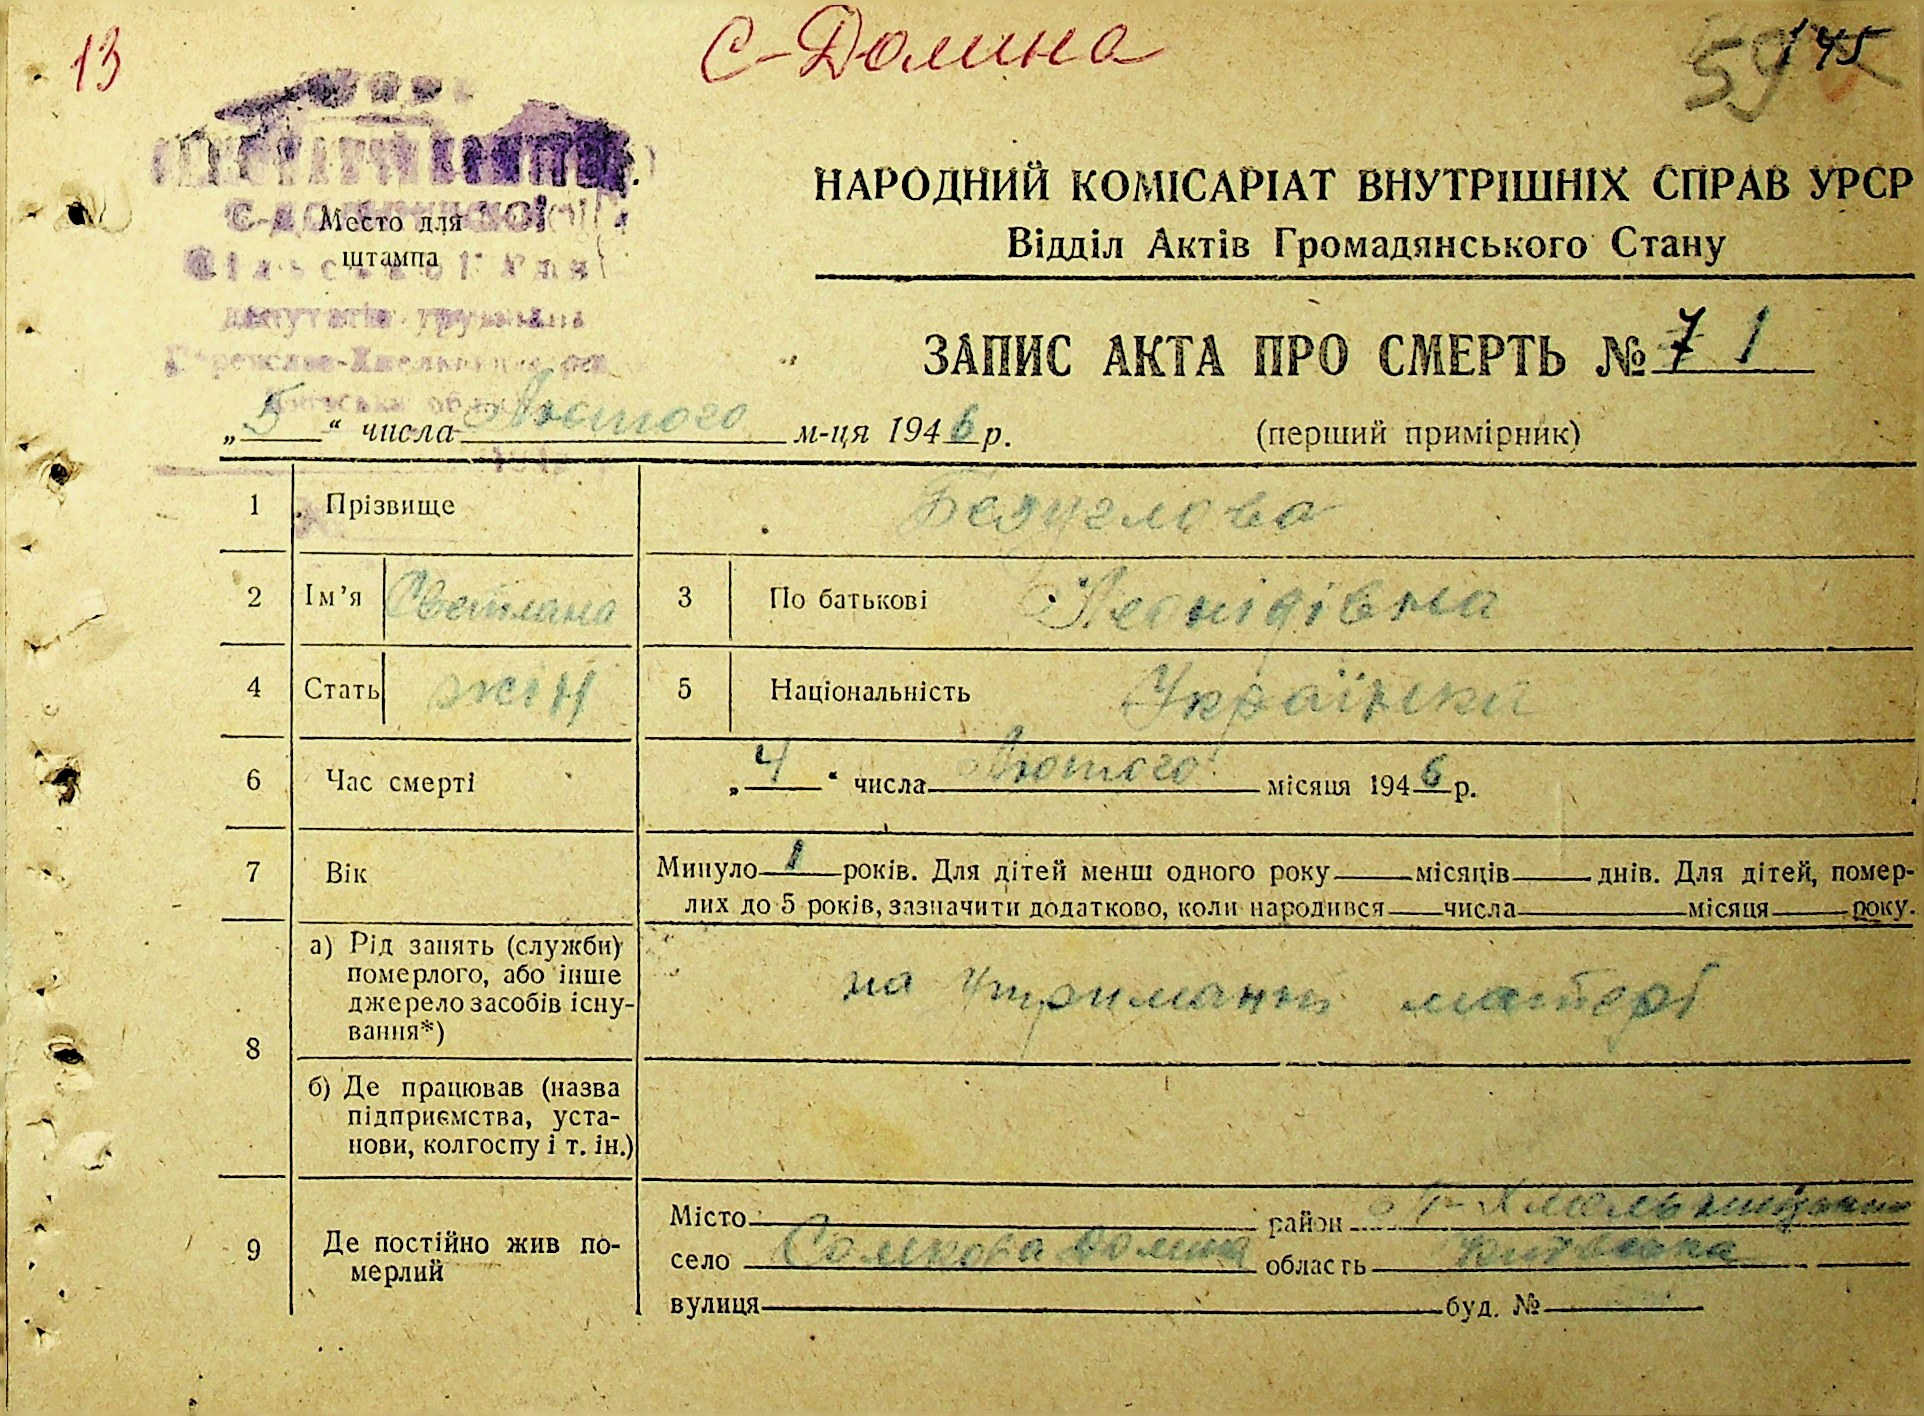 13
С-Долина
145
59
Место для
штампа
депутатів трудящих
НАРОДНИЙ КОМІСАРІАТ ВНУТРІШНІХ СПРАВ УРСР
Відділ Актів Громадянського Стану
ЗАПИС АКТА ПРО СМЕРТЬ № 71
„5“ числа Лютого м-ця 1946 р.
(перший примірник)
1 Прізвище Безуглова
2 Ім’я Светлана 3 По батькові Леонідівна
4 Стать жін 5 Національність Українка
6 Час смерті „4“ числа Лютого місяця 1946 р.
7 Вік Минуло 1 років. Для дітей менш одного року місяців днів. Для дітей, помер-
лих до 5 років, зазначити додатково, коли народився числа місяця року.
8 а) Рід занять (служби)
померлого, або інше
джерело засобів існу-
вання*)
на утриманні матері
б) Де працював (назва
підприємства, уста-
нови, колгоспу і т. ін.)
9 Де постійно жив по-
мерлий
Місто район П-Хмельницький
село Сомкова Долина область Київська
вулиця буд. №